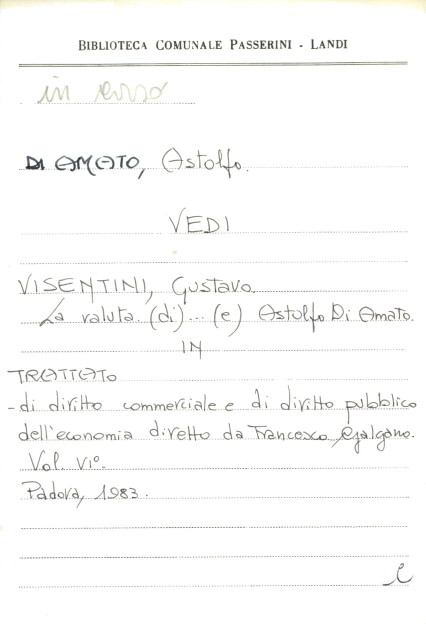 BIBLIOTECA COMUNALE PASSERINI - LANDI
in corso
DI AMATO, Astolfo.
VEDI
VISENTINI, Gustavo.
La valuta (di)... (e) Astolfo Di Amato.
IN
TRATTATO
- di diritto commerciale e di diritto pubblico
dell'economia diretto da Francesco Galgano.
Vol. VI°.
Padova, 1983.